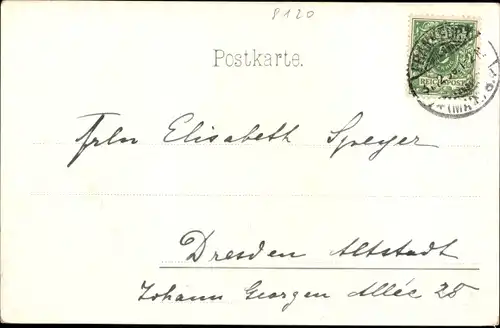 8120
Postkarte.
REICHSPOST
Frln Elisabeth Speyer
Dresden Altstadt
Johann Georgen Allée 25